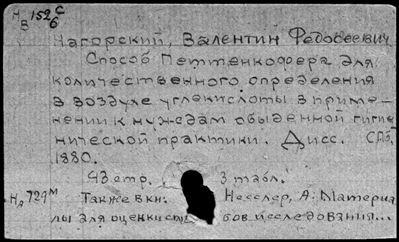 Н в 152 С 6
Нагорский, Валентин Федосеевич
Способ Петтенкофера для
количественного определения
в воздухе углекислоты в приме-
нении к нуждам обыденной гигие-
нической практики. Дисс. СПб,
1880.
43 стр. 3 табл.
Также в кн: Несслер, А. Материа
лы для оценки спо бов исследования...